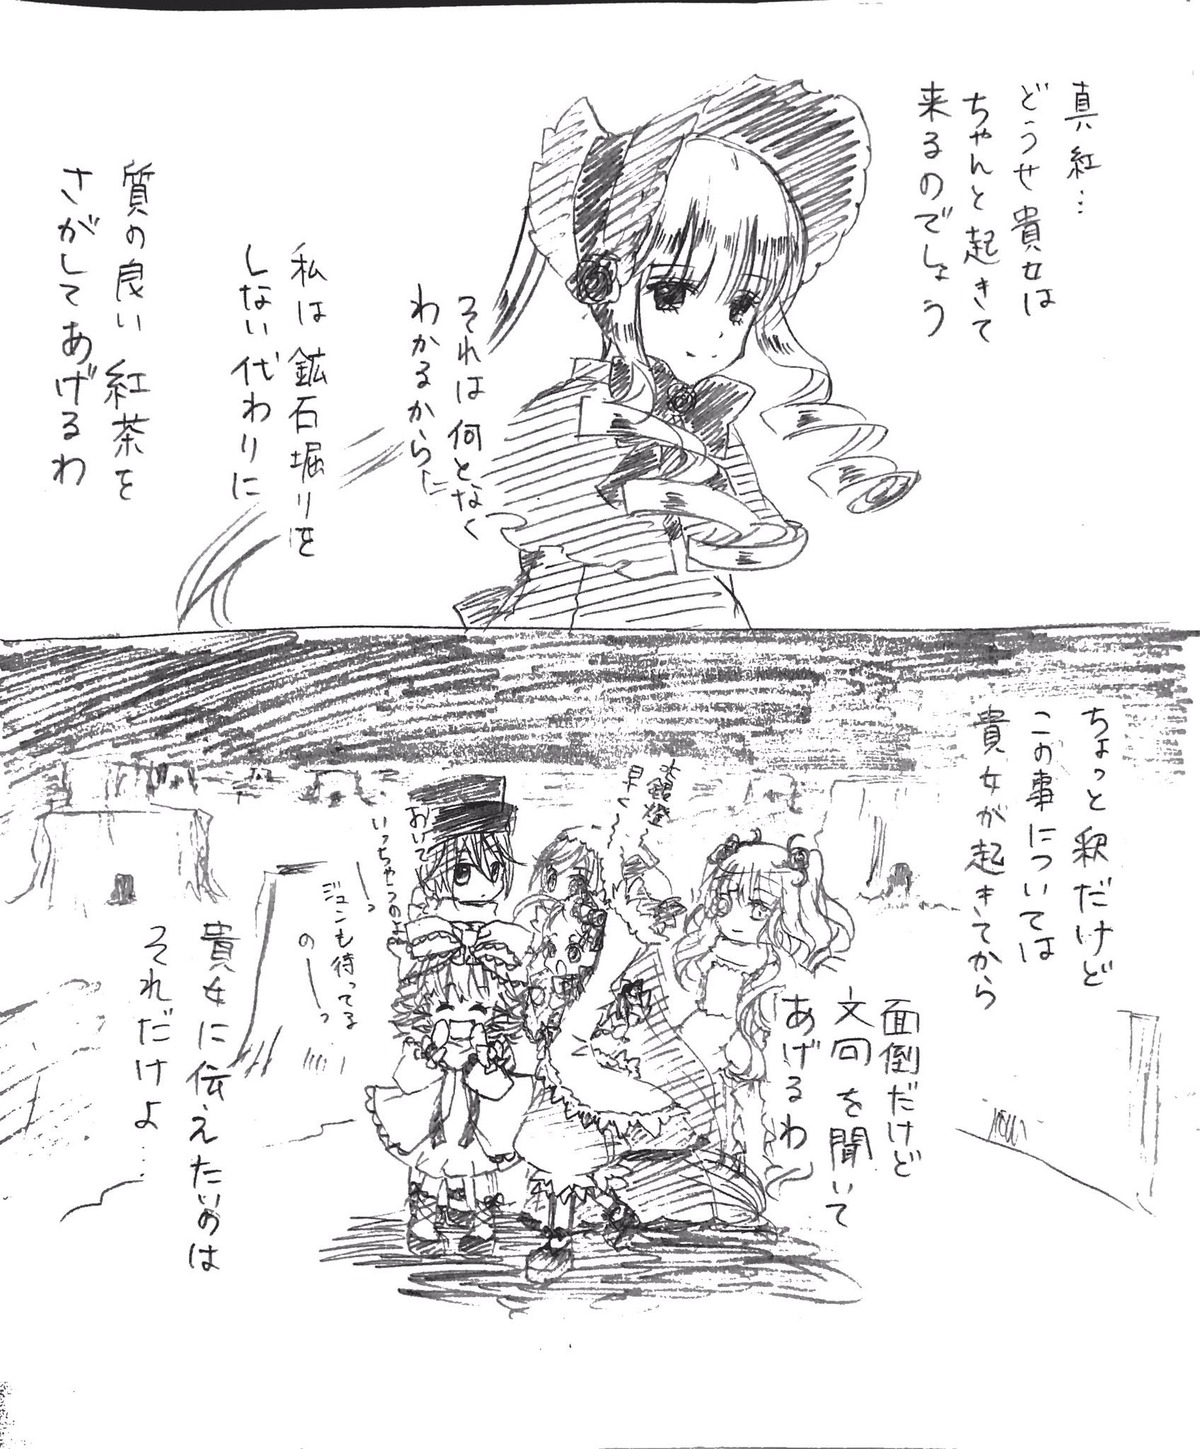 真紅…
どうせ貴女は
ちゃんと起きて
来るのでしょう
それは何となく
わかるから
私は鉱石堀りを
しない代わりに
質の良い紅茶を
さがしてあげるわ
ちょっと釈だけど
この事については
貴女が起きてから
面倒だけど
文句を聞いて
あげるわ
水銀燈
早く
おいて
いっちゃうのよ
ジュンも待ってる
のーっ
貴女に伝えたいのは
それだけよ